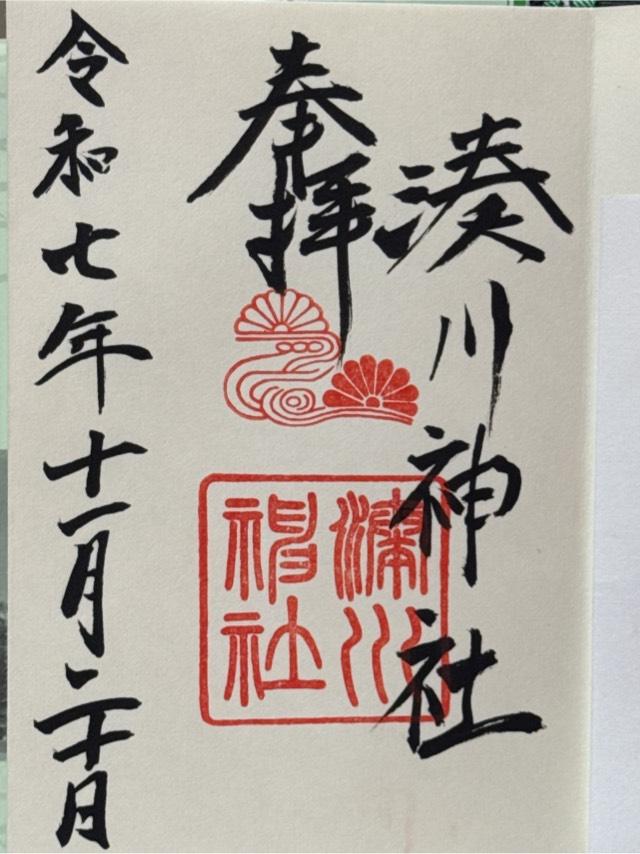 湊川神社
奉拝
湊川
神社
令和七年十一月二十日